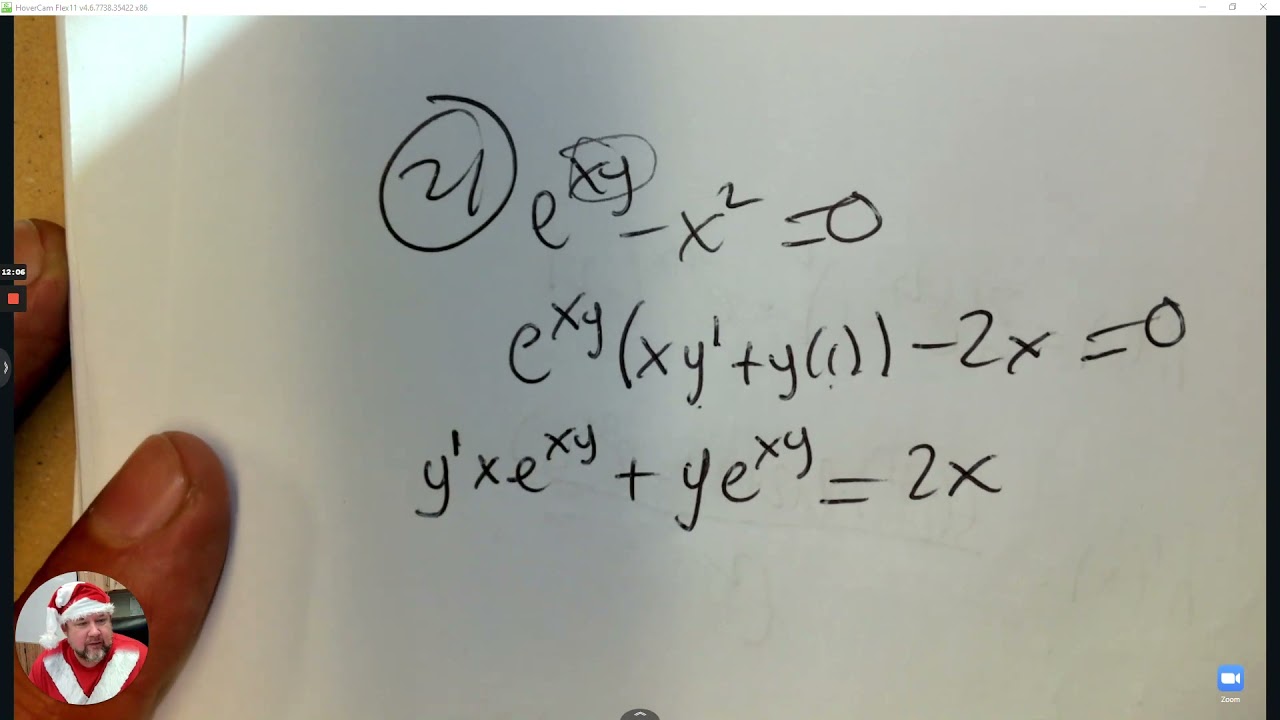 HoverCam Flex11 v4.6.7738.35422 x86
21 e^xy - x^2 = 0
12:06
e^xy (xy' + y(1)) - 2x = 0
y'xe^xy + ye^xy = 2x
Zoom